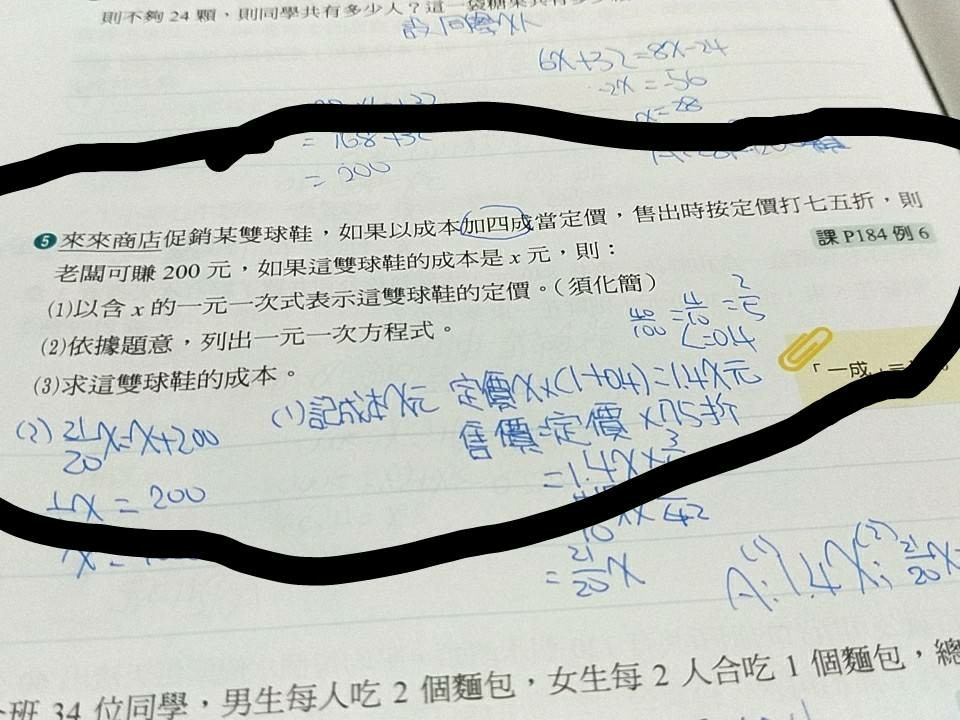 則不夠 24 顆，則同學共有多少人？這一袋糖果共有多少
設同學x人
6x+32=8x-24
-2x=-56
x=28
=168+32
=200
❺來來商店促銷某雙球鞋，如果以成本加四成當定價，售出時按定價打七五折，則
課 P184 例 6
老闆可賺 200 元，如果這雙球鞋的成本是 x 元，則：
⑴以含 x 的一元一次式表示這雙球鞋的定價。(須化簡)
40/100=4/10=2/5
=0.4
⑵依據題意，列出一元一次方程式。
⑶求這雙球鞋的成本。
「一成」=
(1)記成本x元 定價x×(1+0.4)=1.4x元
(2) 21/20x=x+200
售價=定價×75折
x=200
=1.4x×3
=21/20x
A:(1)1.4x;(2)21/20x
班 34 位同學，男生每人吃 2 個麵包，女生每 2 人合吃 1 個麵包，總